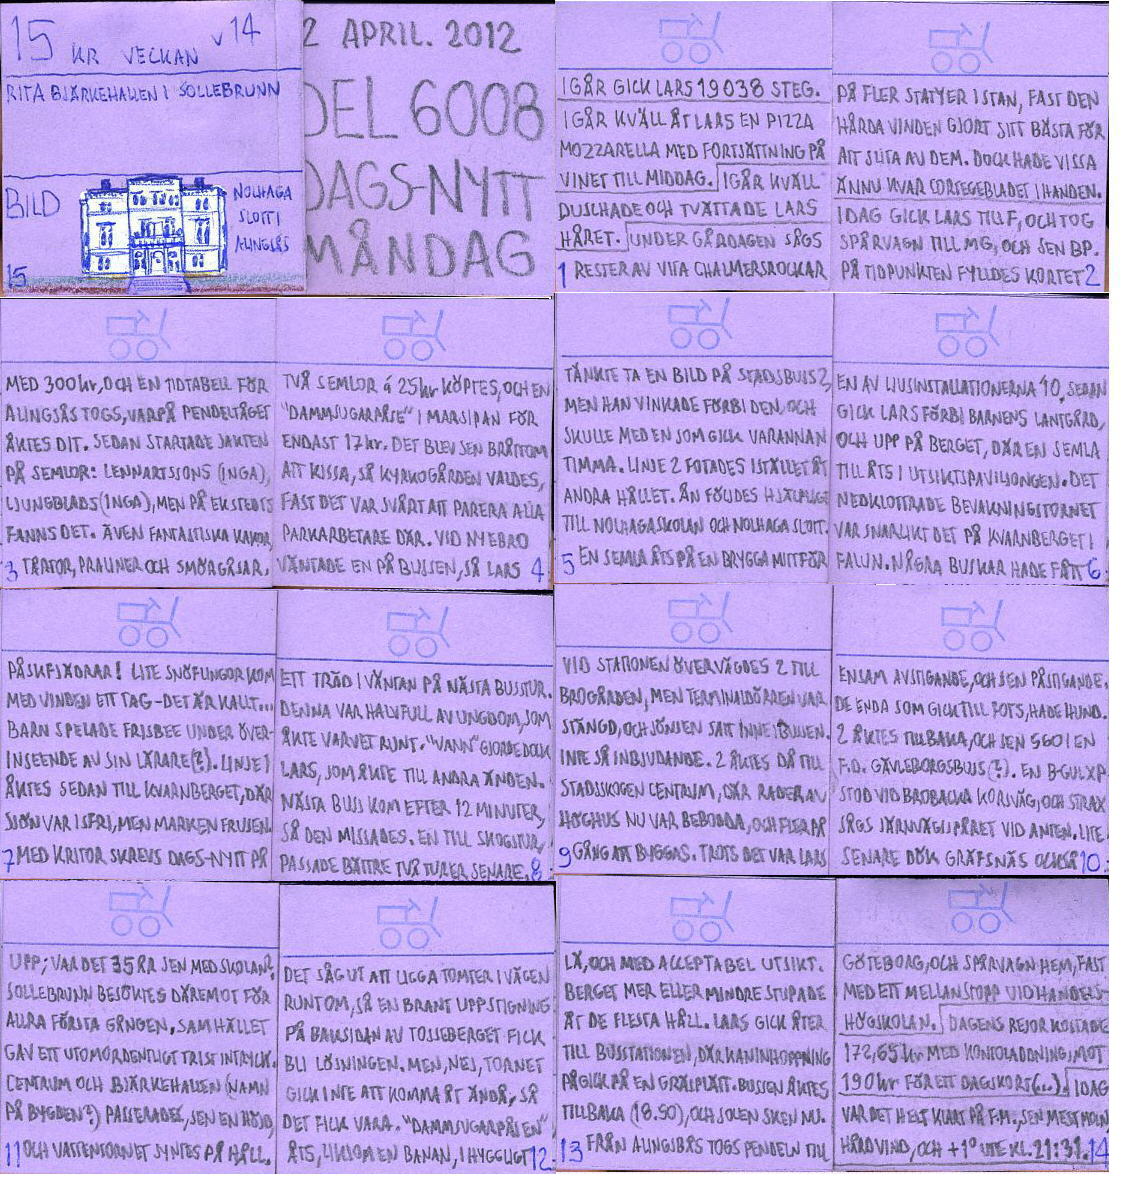 15 KR VECKAN V 14
RITA BJÄRKEHALLEN I SOLLEBRUNN
BILD
NOLHAGA
SLOTT
ALINGSÅS
15
2 APRIL. 2012
DEL 6008
DAGS-NYTT
MÅNDAG
IGÅR GICK LARS 19038 STEG.
IGÅR KVÄLL ÅT LARS EN PIZZA
MOZZARELLA MED FORTSÄTTNING PÅ
VINET TILL MIDDAG. IGÅR KVÄLL
DUSCHADE OCH TVÄTTADE LARS
HÅRET. UNDER GÅRDAGEN SÅGS
1 RESTER AV VITA CHALMERSROCKAR
PÅ FLER STATYER I STAN, FAST DEN
HÅRDA VINDEN GJORT SITT BÄSTA FÖR
ATT SLITA AV DEM. DOCK HADE VISSA
ÄNNU KVAR CORTEGEBLADET I HANDEN.
IDAG GICK LARS TILL F, OCH TOG
SPÅRVAGN TILL MG, OCH SEN BP.
PÅ TIDPUNKTEN FYLLDES KORTET 2
MED 300 kr, OCH EN TIDTABELL FÖR
ALINGSÅS TOGS, VARPÅ PENDELTÅGET
ÅKTES DIT. SEDAN STARTADE JAKTEN
PÅ SEMLOR: LENNARTSSONS (INGA),
LJUNGBLADS (INGA), MEN PÅ EKSTEDTS
FANNS DET. ÄVEN FANTASTISKA KAKOR,
3 TÅRTOR, PRALINER OCH SMÖRGÅSAR.
TVÅ SEMLOR á 25 kr KÖPTES, OCH EN
"DAMMSUGARPÅSE" I MARSIPAN FÖR
ENDAST 17 kr. DET BLEV SEN BRÅTTOM
ATT KISSA, SÅ KYRKOGÅRDEN VALDES,
FAST DET VAR SVÅRT ATT PARERA ALLA
PARKARBETARE DÄR. VID NYEBRO
VÄNTADE EN PÅ BUSSEN, SÅ LARS 4
TÄNKTE TA EN BILD PÅ STADSBUSS 2,
MEN HAN VINKADE FÖRBI DEN, OCH
SKULLE MED EN SOM GICK VARANNAN
TIMMA. LINJE 2 FOTADES ISTÄLLET ÅT
ANDRA HÅLLET. ÅN FÖLJDES
TILL NOLHAGASKOLAN OCH NOLHAGA SLOTT.
5 EN SEMLA ÅTS PÅ EN BRYGGA MITTFÖR
EN AV LJUSINSTALLATIONERNA 10, SEDAN
GICK LARS FÖRBI BARNENS LANTGÅRD,
OCH UPP PÅ BERGET, DÄR EN SEMLA
TILL ÅTS I UTSIKTSPAVILJONGEN. DET
NEDKLOTTRADE BEVAKNINGSTORNET
VAR SNARLIKT DET PÅ KVARNBERGET I
FALUN. NÅGRA BUSKAR HADE FÅTT 6
PÅSKFJÄDRAR! LITE SNÖFLINGOR KOM
MED VINDEN ETT TAG-DET ÄR KALLT...
BARN SPELADE FRISBEE UNDER ÖVER-
INSEENDE AV SIN LÄRARE(?). LINJE 1
ÅKTES SEDAN TILL KVARNBERGET, DÄR
SJÖN VAR ISFRI, MEN MARKEN FRUSEN.
7 MED KRITOR SKREVS DAGS-NYTT PÅ
ETT TRÄD I VÄNTAN PÅ NÄSTA BUSSTUR.
DENNA VAR HALVFULL AV UNGDOM, SOM
ÅKTE VARVET RUNT. "VANN" GJORDE DOCK
LARS, SOM ÅKTE TILL ANDRA ÄNDEN.
NÄSTA BUSS KOM EFTER 12 MINUTER,
SÅ DEN MISSADES. EN TILL SKOGSTUR,
PASSADE BÄTTRE TVÅ TURER SENARE. 8
VID STATIONEN ÖVERVÄGDES 2 TILL
BROGÅRDEN, MEN TERMINALDÖRREN VAR
STÄNGD, OCH JÖNSEN SATT INNE I BUSSEN.
INTE SÅ INBJUDANDE. 2 ÅKTES DÅ TILL
STADSSKOGEN CENTRUM, DÄR RADER AV
HÖGHUS NU VAR BEBODDA, OCH FLER PÅ
9 GÅNG ATT BYGGAS. TROTS DET VAR LARS
ENSAM AVSTIGANDE, OCH SEN PÅSTIGANDE.
DE ENDA SOM GICK TILL FOTS, HADE HUND.
2 ÅKTES TILLBAKA, OCH SEN 560 I EN
F.D. GÄVLEBORGSBUSS (?). EN B-GULXP
STOD VID BROBACKA KORSVÄG, OCH STRAX
SÅGS JÄRNVÄGSSPÅRET VID ANTEN. LITE
SENARE DÖK GRÄFSNÄS OCKSÅ 10
UPP; VAR DET 35 ÅR SEN MED SKOLAN?
SOLLEBRUNN BESÖKTES DÄREMOT FÖR
ALLRA FÖRSTA GÅNGEN. SAMHÄLLET
GAV ETT UTOMORDENTLIGT TRIST INTRYCK.
CENTRUM OCH BJÄRKEHALLEN (NAMN
PÅ BYGDEN?) PASSERADES, SEN EN HÖJD,
11 OCH VATTENTORNET SYNTES PÅ HÅLL.
DET SÅG UT ATT LIGGA TOMTER I VÄGEN
RUNTOM, SÅ EN BRANT UPPSTIGNING
PÅ BAKSIDAN AV TOSSEBERGET FICK
BLI LÖSNINGEN. MEN, NEJ, TORNET
GICK INTE ATT KOMMA ÅT ÄNDÅ, SÅ
DET FICK VARA. "DAMMSUGARPÅSEN"
ÅTS, LIKSOM EN BANAN, I HYGGLIGT 12
LÄ, OCH MED ACCEPTABEL UTSIKT.
BERGET MER ELLER MINDRE STUPADE
ÅT DE FLESTA HÅLL. LARS GICK ÅTER
TILL BUSSTATIONEN, DÄR KANINHOPPNING
PÅGICK PÅ EN GRÄSPLÄTT. BUSSEN ÅKTES
TILLBAKA (18.50), OCH SOLEN SKEN NU.
13 FRÅN ALINGSÅS TOGS PENDELN TILL
GÖTEBORG, OCH SPÅRVAGN HEM, FAST
MED ETT MELLANSTOPP VID HANDELS-
HÖGSKOLAN. DAGENS RESOR KOSTADE
172,65 kr MED KONTOLADDNING, MOT
190 kr FÖR ETT DAGSKORT(...). IDAG
VAR DET HELT KLART PÅ F.M., SEN MEST MOLN,
HÅRD VIND, OCH +1° UTE KL. 21:31. 14